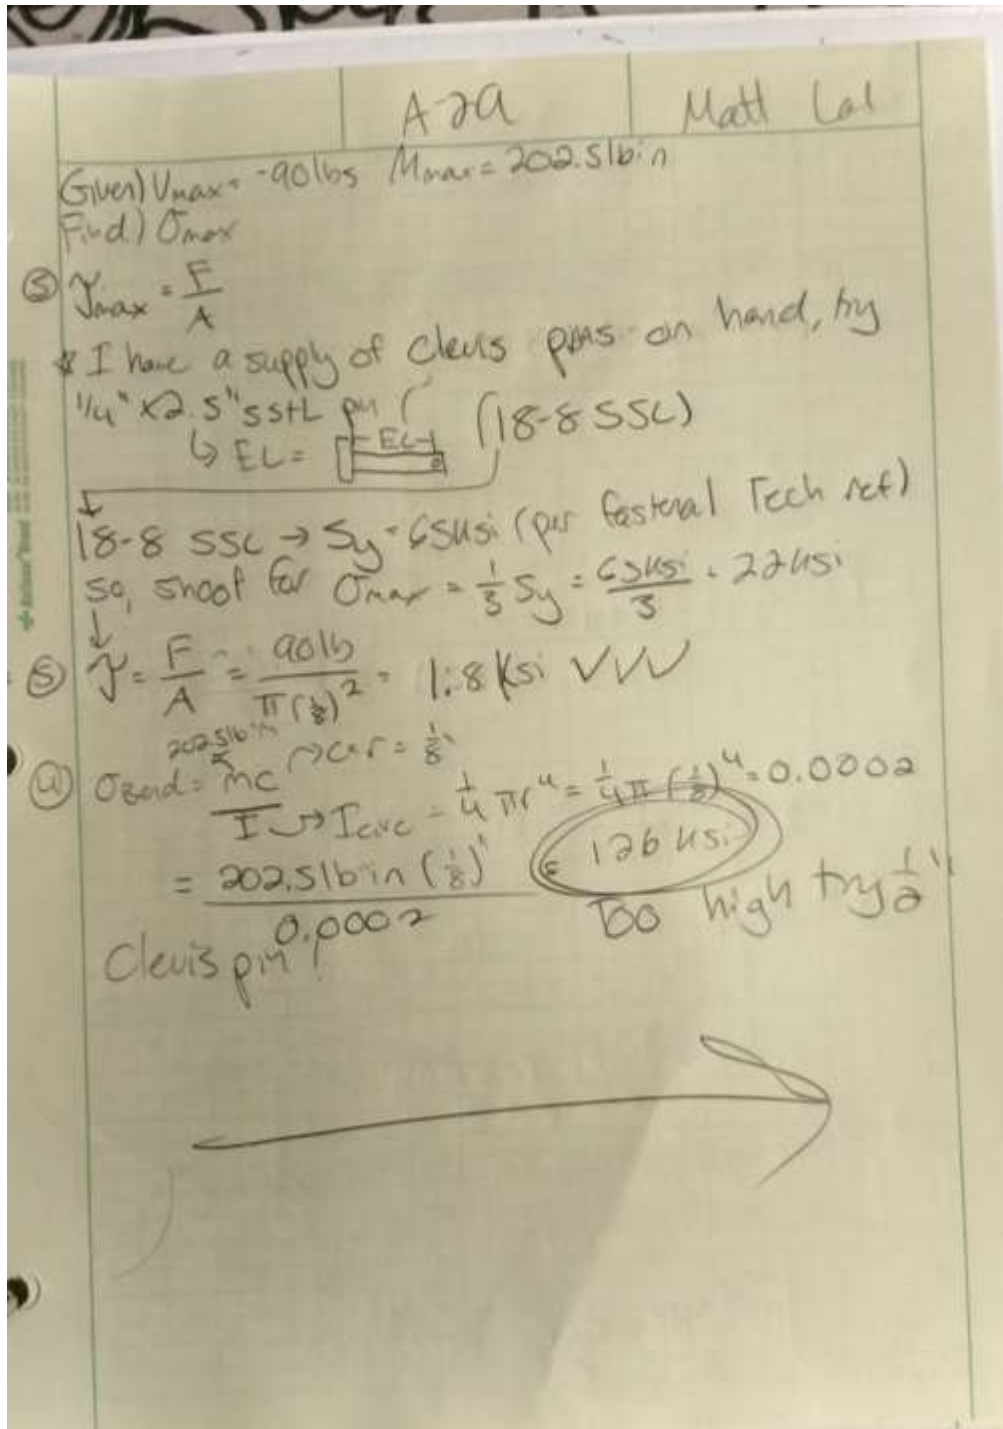 A22a
Matt Lal
Given) Vmax = -90lbs Mmax = 202.5lbin
Find) σmax
⑤ τmax = F/A
* I have a supply of Clevis pins on hand, try
1/4" x2.5" SStL pin (18-8 SSL)
↳ EL = EL
18-8 SSL → Sy = 65Ksi (per fastenal Tech ref)
so, shoot for σmax = 1/3 Sy = 65Ksi/3 = 22Ksi
⑤ τ = F/A = 90lb/π(1/8)² = 1.8 Ksi
202.5lbin
④ σBend = mc/I → c = r = 1/8"
→ Icirc = 1/4 πr⁴ = 1/4 π (1/8)⁴ = 0.0002
= 202.5lbin (1/8)"/0.0002 = 126 Ksi
Too high try 1/2"
Clevis pin!